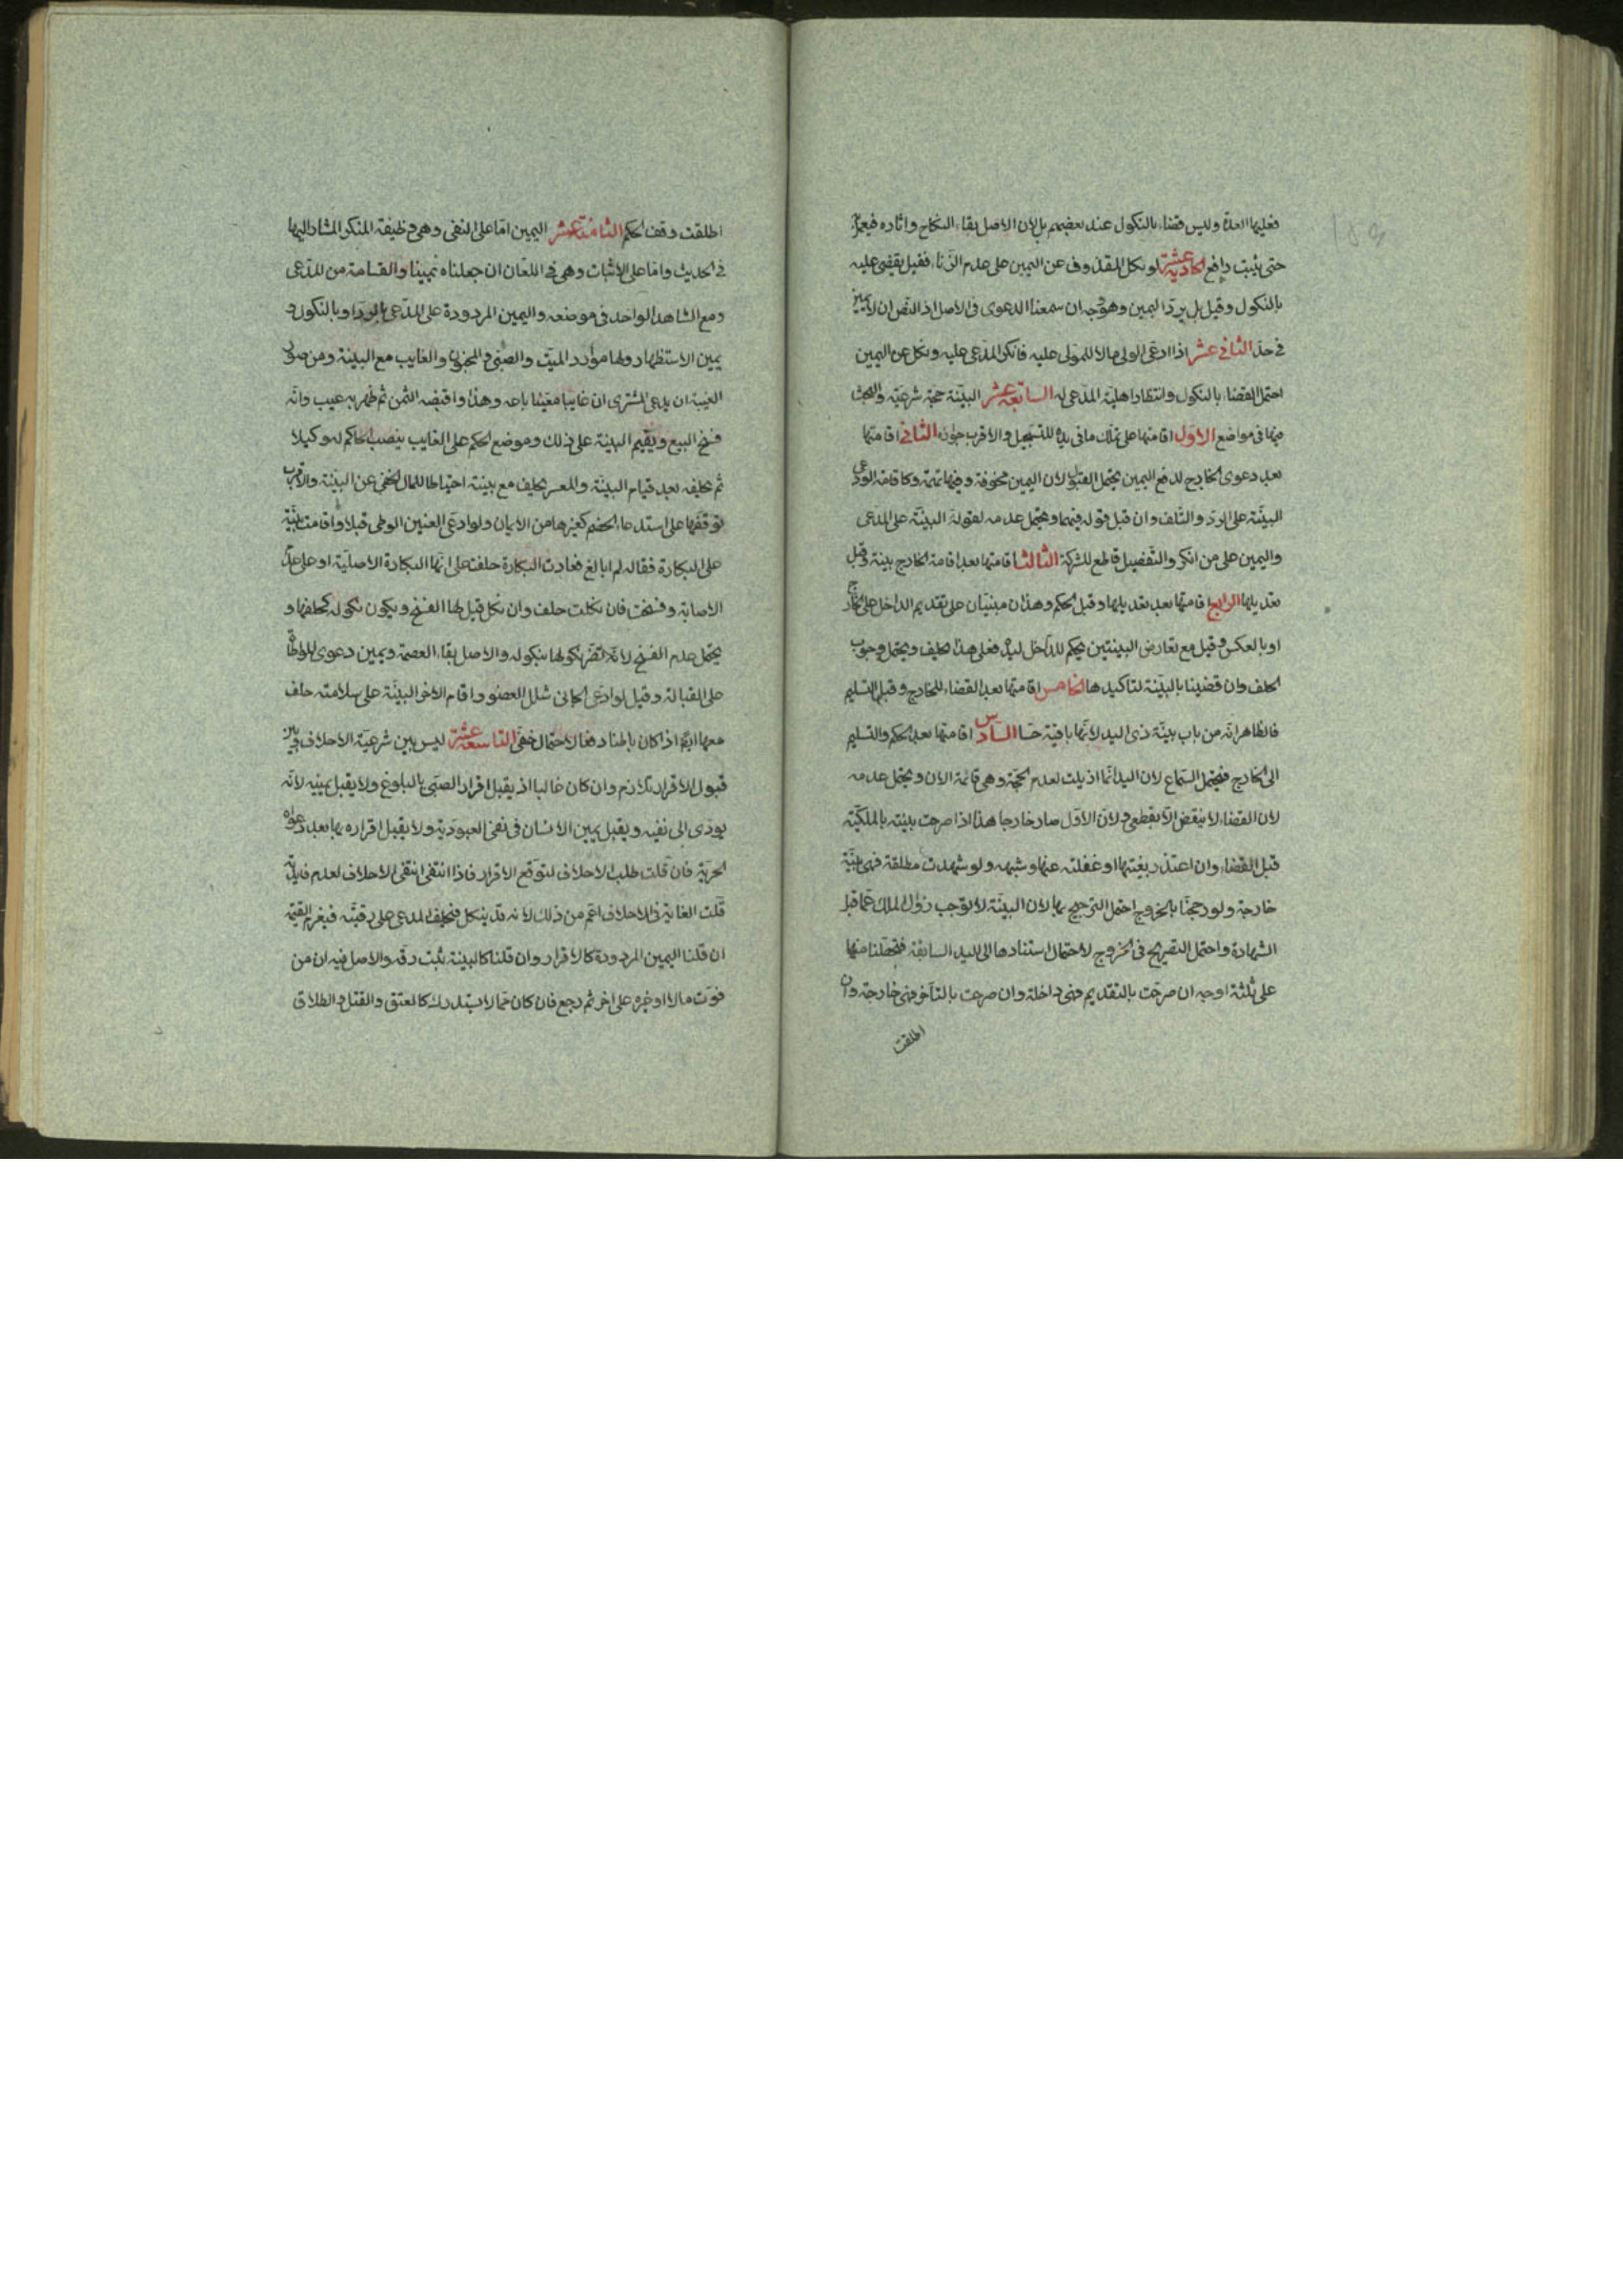 فعليها العدة وليس قضاء بالنكول عند بعضهم بل لان الاصل بقاء النكاح واثاره فيعمل
حتى يثبت رافع الحادية عشر لو نكل المقذوف عن اليمين على عدم الزنا فقيل يقضى عليه
بالنكول وقيل بل يرد اليمين وهو وجه ان سمعنا الدعوى فى الاصل اذ النص ان لا يمين
فى حد الثانى عشر اذا ادعى الولى مالا للمولى عليه فانكر المدعى عليه ونكل عن اليمين
احتمل القضاء بالنكول وانتظار اهلية المدعى له السابعة عشر البينة حجة شرعية والبحث
فيها فى مواضع الاول اقامتها على تملك ما فى يده للتسجيل والاقرب جوازه الثانى اقامتها
بعد دعوى الخارج لدفع اليمين يحتمل القبول لان اليمين مخوفة وفيها تهمة وكاقامة الودعى
البينة على الرد والتلف وان قبل قوله فيهما ويحتمل عدمه لقوله البينة على المدعى
واليمين على من انكر والتفصيل قاطع للشركة الثالث اقامتها بعد اقامة الخارج بينة وقبل
تعديلها الرابع اقامتها بعد تعديلها وقبل الحكم وهذان مبنيان على تقديم الداخل على الخارج
او بالعكس وقيل مع تعارض البينتين يحكم للداخل ليده فعلى هذا يحلف ويحتمل وجوب
الحلف وان قضينا بالبينة لتأكيدها الخامس اقامتها بعد القضاء للخارج وقبل التسليم
فالظاهر انه من باب بينة ذى اليد لانها باقية حسا السادس اقامتها بعد الحكم والتسليم
الى الخارج فيحتمل السماع لان اليد انما ازيلت لعدم الحجة وهى قائمة الان ويحتمل عدمه
لان القضاء لا ينقض الا بقطعى ولان الاول صار خارجا هذا اذا صرحت بينته بالملكية
قبل القضاء وان اعتذر بغيبتها او غفلته عنها وشبهه ولو شهدت مطلقة فهى بينة
خارجة ولو رجحنا بالخروج احتمل الترجيح بها لان البينة لا توجب زوال الملك عما قبل
الشهادة واحتمل التصريح فى الخروج لاحتمال استنادها الى اليد السابقة فتحصلنا منها
على ثلثة اوجه ان صرحت بالتقديم فهى داخلة وان صرحت بالتاخر فهى خارجة وان
اطلقت
اطلقت وقف الحكم الثامنة عشر اليمين اما على النفى وهى وظيفة المنكر المشار اليها
فى الحديث واما على الاثبات وهى فى اللعان ان جعلناه يمينا والقسامة من المدعى
ومع الشاهد الواحد فى موضعه واليمين المردودة على المدعى بالرد او بالنكول و
يمين الاستظهار ولها موارد الميت والصبى والمجنون والغايب مع البينة ومن صور
الغيبة ان يدعى المشترى ان غايبا معينا باعه وهذا واقبضه الثمن ثم ظهر به عيب وانه
فسخ البيع ويقيم البينة على ذلك وموضع الحكم على الغايب ينصب الحاكم له وكيلا
ثم يحلفه بعد قيام البينة والمعسر يحلف مع بينة احتياطا للمال الخفى عن البينة والاقرب
توقفها على استدعاء الخصم كغيرها من الايمان ولو ادعى العنين الوطى قبلا واقامت بينة
على البكارة فقال لم ابالغ فعادت البكارة حلفت على انها البكارة الاصلية او على عدم
الاصابة وفسخت فان نكلت حلف وان نكل قيل لها الفسخ ويكون نكوله كحلفها و
يحتمل عدم الفسخ لانه تعارض نكولها بنكوله والاصل بقاء العصمة ويمين دعوى المواطاة
على القبالة وقيل لو ادعى الجانى شلل العضو واقام الاخر البينة على سلامته حلف
معها ايضا اذا كان باطنا دفعا لاحتمال خفى التاسعة عشر ليس بين شرعية الاحلاف وبين
قبول الاقرار تلازم وان كان غالبا اذ يقبل اقرار الصبى بالبلوغ ولا يقبل يمينه لانه
يودى الى نفيه ويقبل يمين الانسان فى نفى العبودية ولا يقبل اقراره بها بعد دعواه
الحرية فان قلت طلب الاحلاف لتوقع الاقرار فاذا انتفى انتفى الاحلاف لعدم فايدته
قلت الغاية فى الاحلاف اعم من ذلك لانه قد ينكل فيحلف المدعى على رقيته فيغرم القيمة
ان قلنا اليمين المردودة كالاقرار وان قلنا كالبينة يثبت رقه والاصل فيه ان من
فوت مالا او غيره على اخر ثم رجع فان كان مما لا يستدرك كالعتق والقتل والطلاق